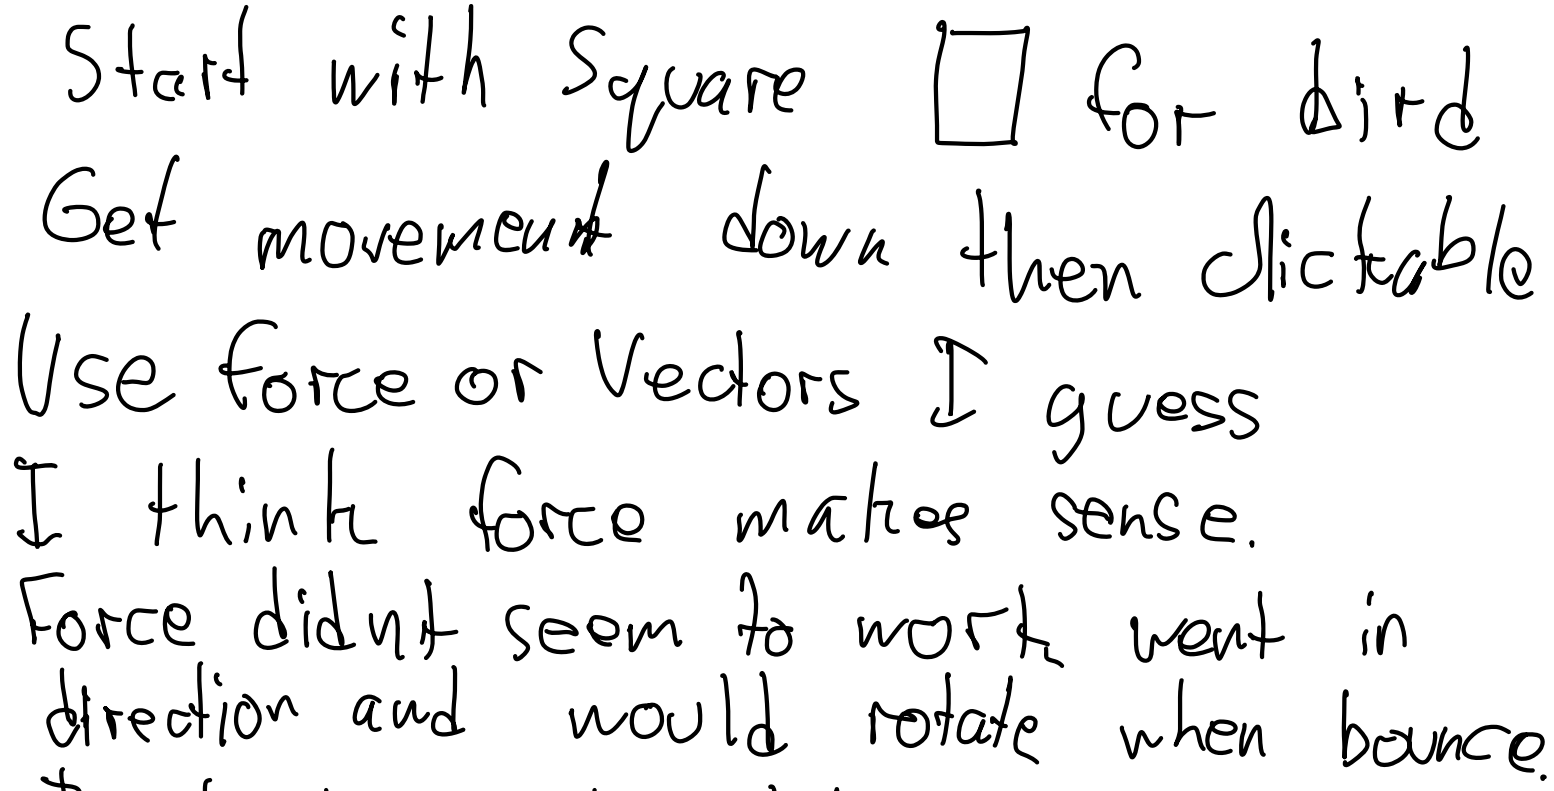 Start with Square for bird
Get movement down then clickable
Use force or Vectors I guess
I think force makes sense.
Force didnt seem to work went in
direction and would rotate when bounce.